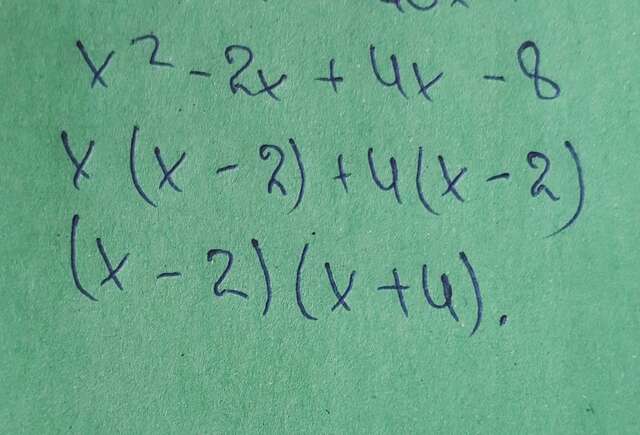 x² - 2x + 4x - 8
x (x - 2) + 4(x - 2)
(x - 2) (x + 4).